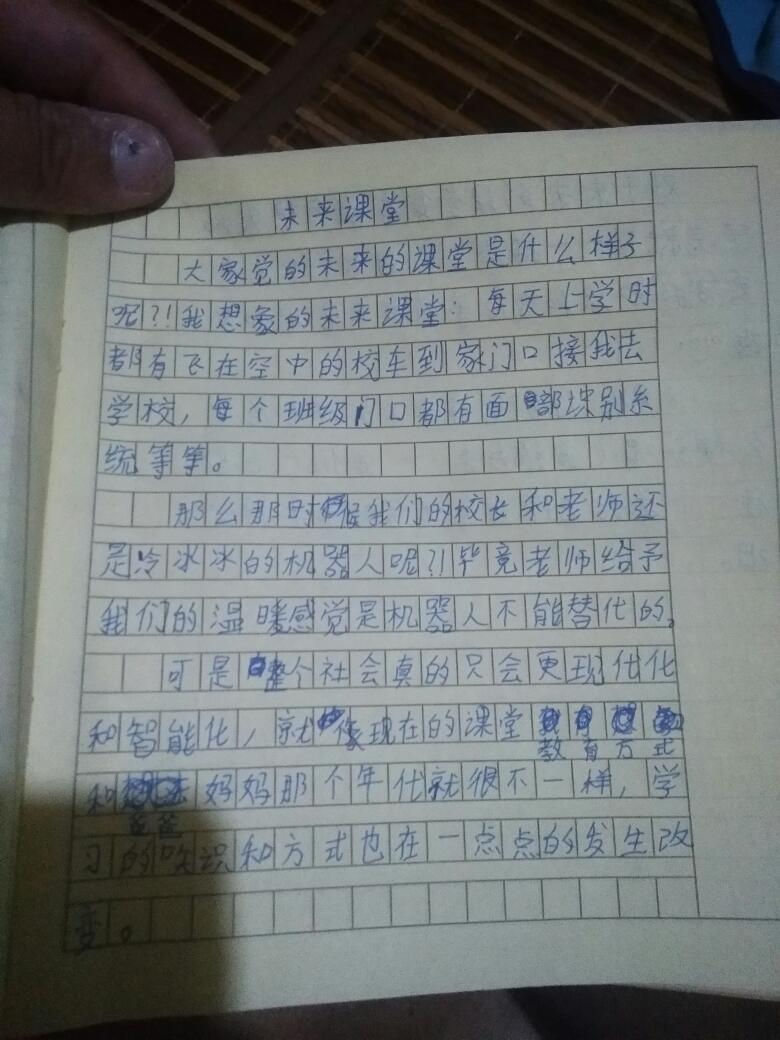 未来课堂
大家觉的未来的课堂是什么样子
呢?!我想象的未来课堂:每天上学时
都有飞在空中的校车到家门口接我去
学校,每个班级门口都有面部识别系
统等等。
那么那时候我们的校长和老师还
是冷冰冰的机器人呢?!毕竟老师给予
我们的温暖感觉是机器人不能替代的。
可是整个社会真的只会更现代化
和智能化,就像现在的课堂教育方式
和爸爸妈妈那个年代就很不一样,学
习的知识和方式也在一点点的发生改
变。